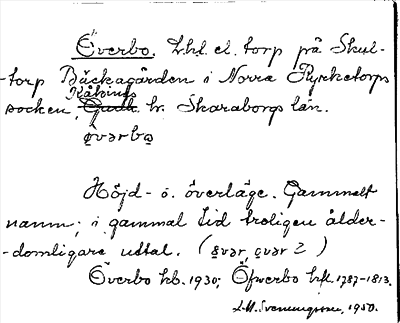 Överbo. Lht. el. torp på Skul-
-torp Bäckagården i Norra Kyrketorps
Kåkinds
socken, Gudh. hr. Skaraborgs län.
ǫ̈vərbǫ
Höjd- o. överläge. Gammalt
namn; i gammal tid troligen ålder-
-domligare uttal. (övər, övər ? )
Överbo kb. 1930; Öfwerbo hfl. 1787-1813.
L.M. Svenungsson, 1950.